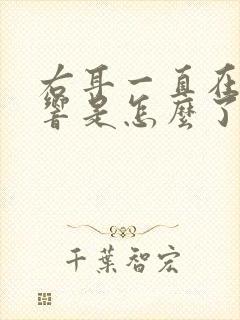 右耳一直在
響是怎麼了
千葉智宏